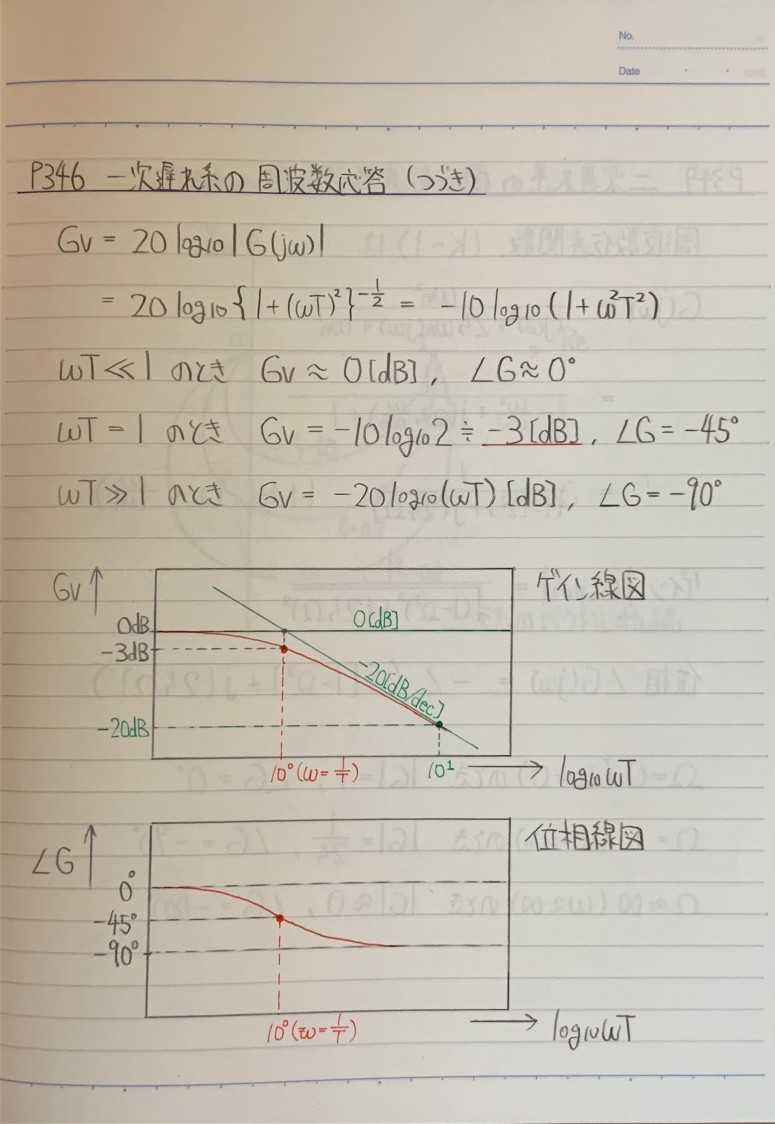 No.
Date
P346 一次遅れ系の周波数応答 (つづき)
Gv = 20 log10 |G(jω)|
= 20 log10 {1+(ωT)²}^{-1/2} = -10 log10 (1+ω²T²)
ωT≪1 のとき Gv ≈ 0[dB], ∠G≈0°
ωT=1 のとき Gv = -10log10 2 ≒ -3[dB], ∠G=-45°
ωT≫1 のとき Gv = -20log10(ωT)[dB], ∠G=-90°
Gv ↑
ゲイン線図
0dB
0[dB]
-3dB
-20[dB/dec]
-20dB
10⁰(ω=1/T)
10¹
→ log10 ωT
∠G ↑
位相線図
0°
-45°
-90°
10⁰(ω=1/T)
→ log10 ωT